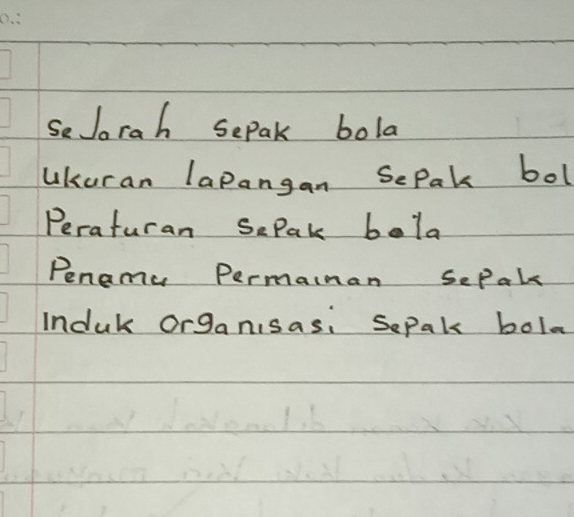 o.:
seJarah sepak bola
ukuran lapangan sepak bol
Peraturan sepak bola
Penemu Permainan sepak
induk organisasi sepak bola